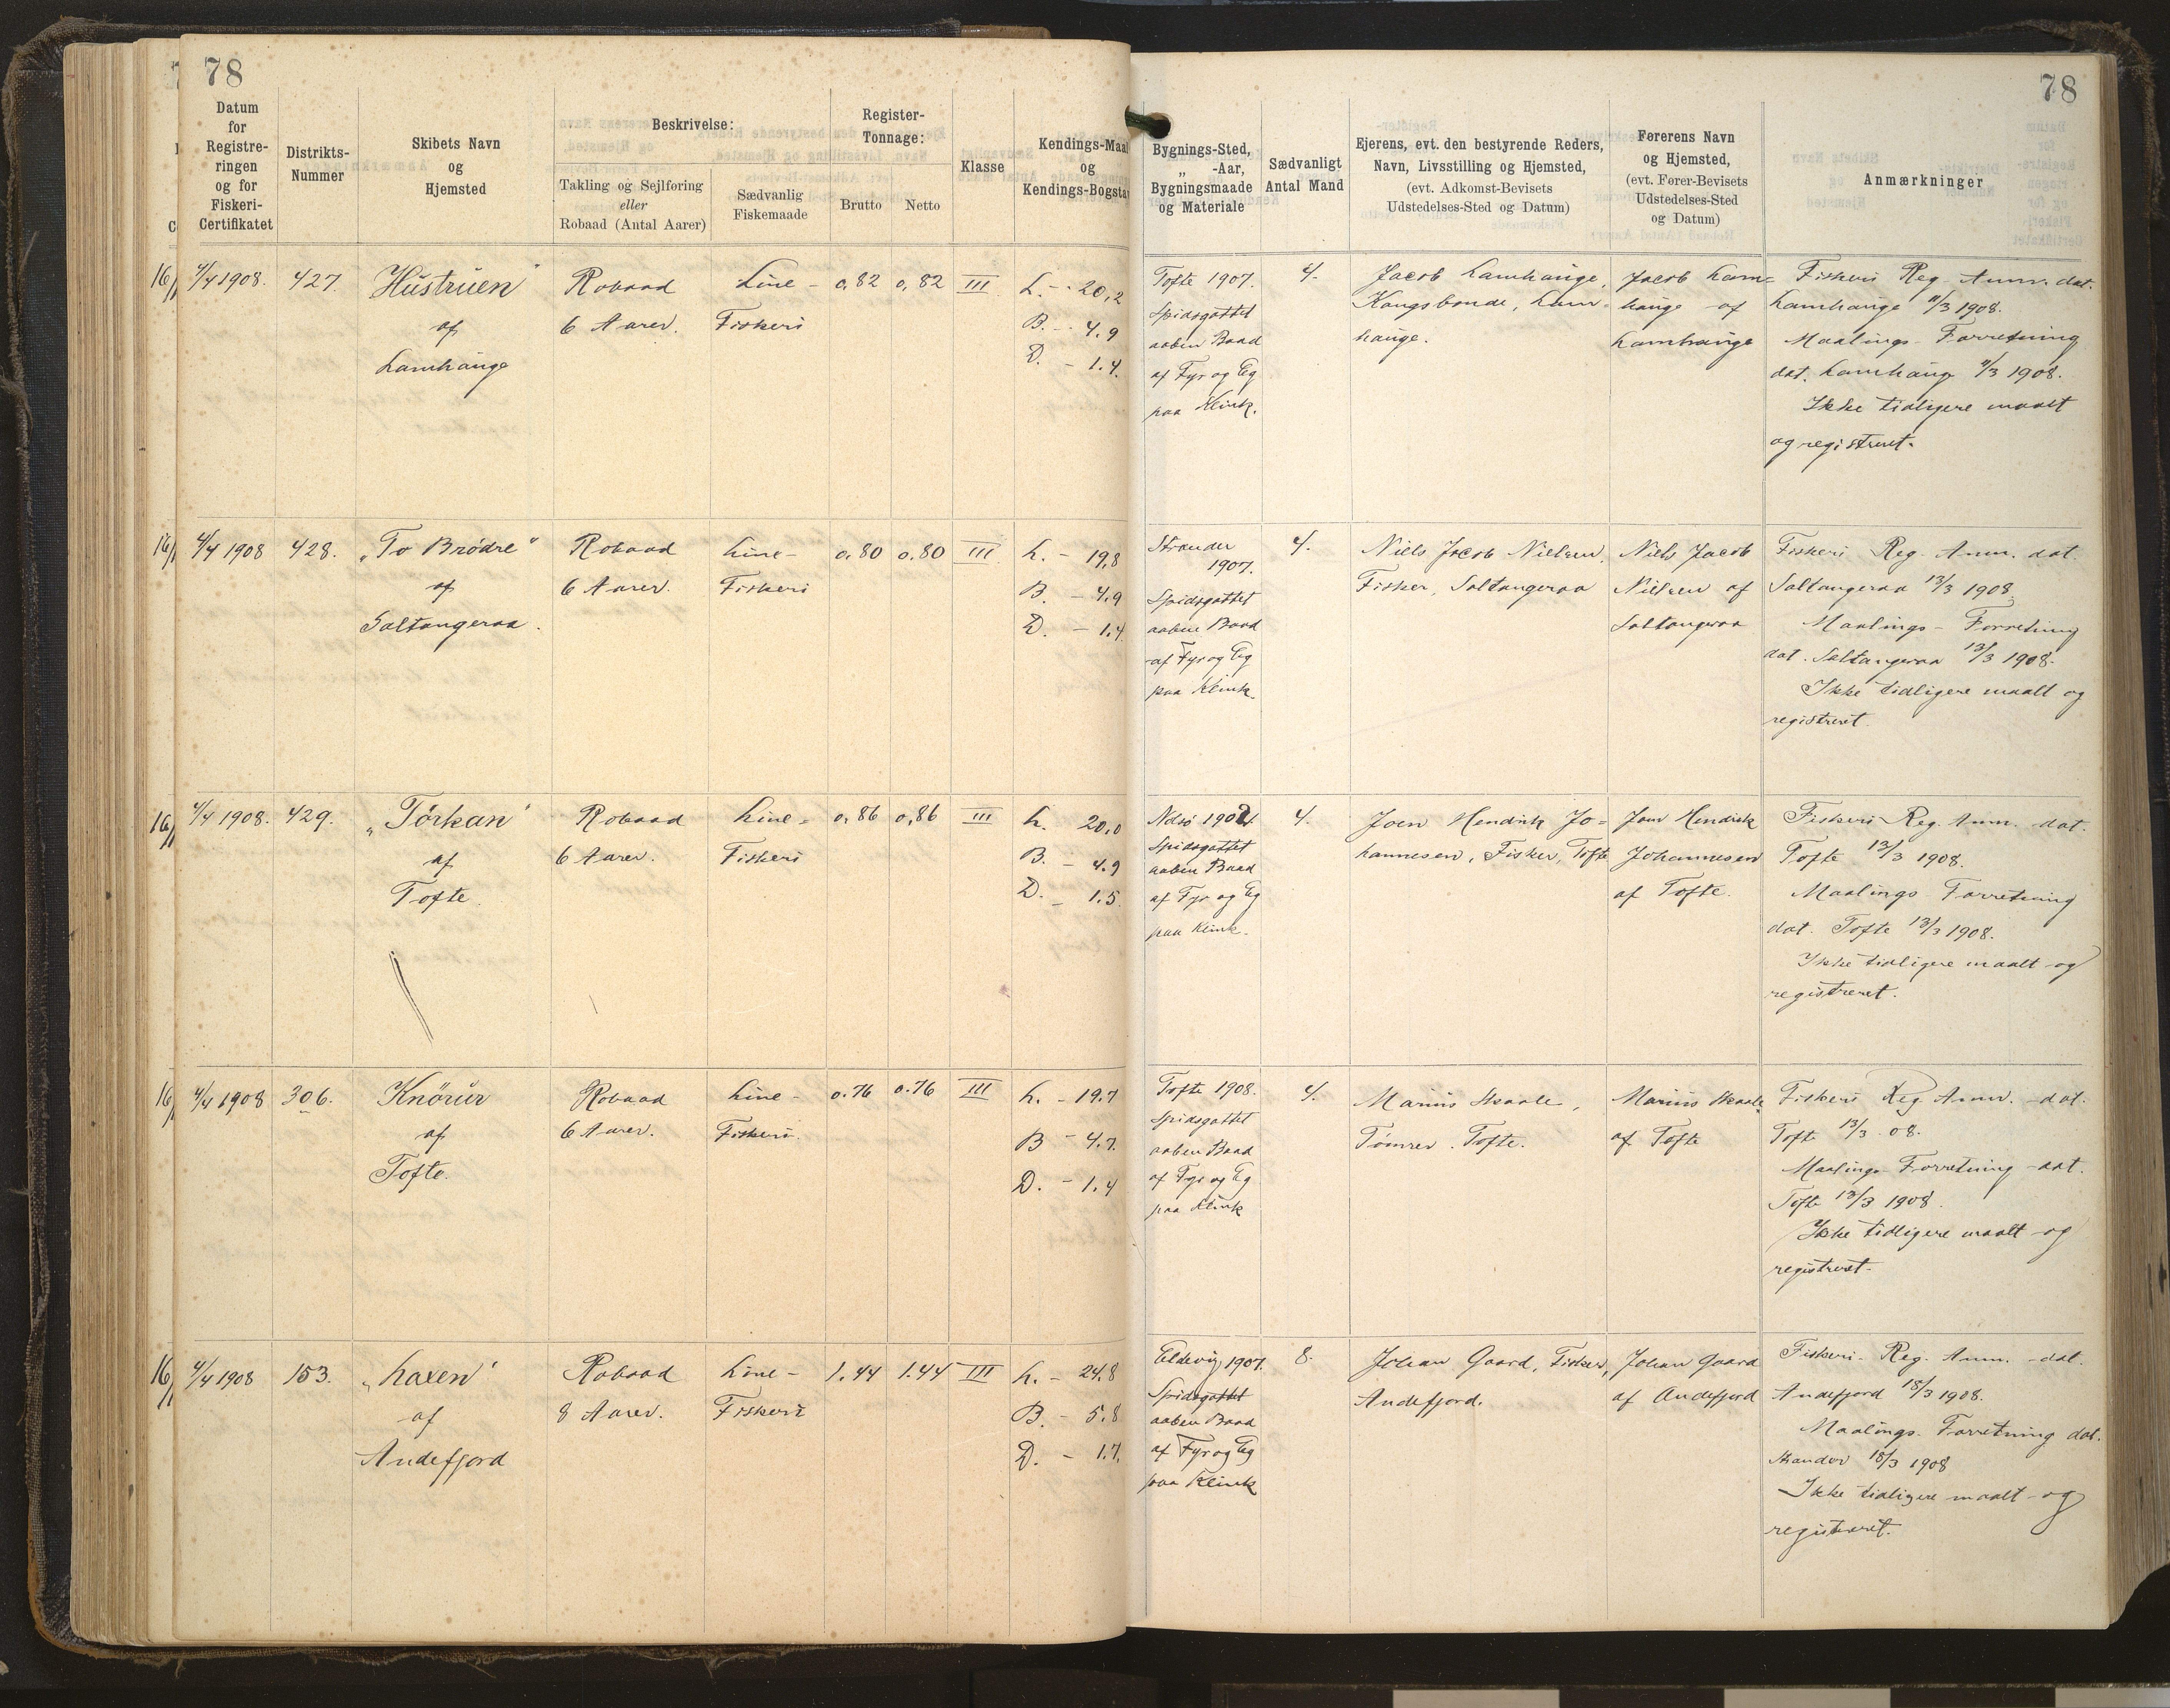 78
78
Datum
for
Registre-
ringen
og for
Fiskeri-
Certifikatet
Distrikts-
Nummer
Skibets Navn
og
Hjemsted
Beskrivelse:
Takling og Sejlføring
eller
Robaad (Antal Aarer)
Sædvanlig
Fiskemaade
Register-
Tonnage:
Brutto
Netto
Klasse
Kendings-Maal
og
Kendings-Bogstav
Bygnings-Sted,
„ -Aar,
Bygningsmaade
og Materiale
Sædvanligt
Antal Mand
Ejerens, evt. den bestyrende Reders,
Navn, Livsstilling og Hjemsted,
(evt. Adkomst-Bevisets
Udstedelses-Sted og Datum)
Førerens Navn
og Hjemsted,
(evt. Fører-Bevisets
Udstedelses-Sted
og Datum)
Anmærkninger
4/4 1908.
427.
Hustruen"
af
Lamhauge
Robaad
6 Aarer.
Line-
Fiskeri
0,82
0,82
III
L. - 20,2
B. - 4.9
D. - 1.4.
Tofte 1907.
Spidsgattet
aaben Baad
af Fyr og Eg
paa Klink.
4.
Jacob Lamhauge,
Kongsbonde, Lam-
hauge.
Jacob Lam-
hauge af
Lamhauge
Fiskeri Reg. Anm. dat.
Lamhauge 11/3 1908.
Maalings-Forretning
dat. Lamhaug 11/3 1908.
Ikke tidligere maalt
og registreret.
4/4 1908
428.
„To Brødre"
af
Saltangeraa.
Robaad
6 Aarer.
Line-
Fiskeri
0,80
0,80
III
L. - 19,8
B. - 4.9
D. - 1.4
Strander
1907.
Spidsgattet
aaben Baad
af Fyr og Eg
paa Klink.
4.
Niels Jacob Nielsen,
Fisker, Saltangeraa
Niels Jacob
Nielsen af
Saltangeraa
Fiskeri Reg. Anm. dat.
Saltangeraa 13/3 1908.
Maalings-Forretning
dat. Saltangeraa 13/3 1908.
Ikke tidligere maalt og
registreret.
4/4 1908.
429.
„Törkan"
af
Tofte.
Robaad
6 Aarer.
Line-
Fiskeri
0,86
0,86
III
L. 20,0
B. - 4.9
D. - 1.5.
Spidsgattet
aaben Baad
af Fyr og Eg
paa Klink.
4.
Joen Hendrik Jo-
hannesen, Fisker, Tofte
Joen Hendrik
Johannesen
af Tofte.
Fiskeri Reg. Anm. dat.
Tofte 13/3 1908.
Maalings Forretning
dat. Tofte 13/3 1908.
Ikke tidligere maalt og
registreret.
4/4 1908
306.
Knörur
af
Tofte.
Robaad
6 Aarer.
Line-
Fiskeri
0.76
0.76
III
L. - 19.7
B - 4.7.
D. - 1.4
Tofte 1908.
Spidsgattet
aaben Baad
af Fyr og Eg
paa Klink
4.
Marius Skaale,
Tømrer. Tofte.
Marius Skaale
af Tofte
Fiskeri Reg. Anm. dat.
Tofte 13/3 - 08.
Maalings Forretning dat.
Tofte 13/3 1908.
Ikke tidligere maalt og
registreret.
4/4 1908
153.
„Laxen"
af
Andefjord
Robaad
8 Aarer.
Line-
Fiskeri
1.44
1.44
III
L. - 24,8
B. - 5.8
D. - 1.7.
Eldevig 1907.
Spidsgattet
aaben Baad
af Fyr og Eg
paa Klink
8.
Johan Gaard, Fisker,
Andefjord.
Johan Gaard
af Andefjord
Fiskeri-Reg. Anm. dat.
Andefjord 18/3 1908.
Maalings-Forretning dat.
18/3 1908
Ikke tidligere maalt og
registreret.